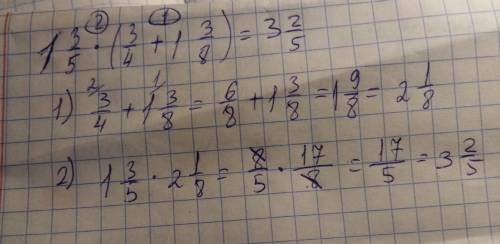 ② ①
1 3/5 · (3/4 + 1 3/8) = 3 2/5
1) ²3/4 + ¹1 3/8 = 6/8 + 1 3/8 = 1 9/8 = 2 1/8
2) 1 3/5 · 2 1/8 = 8/5 · 17/8 = 17/5 = 3 2/5